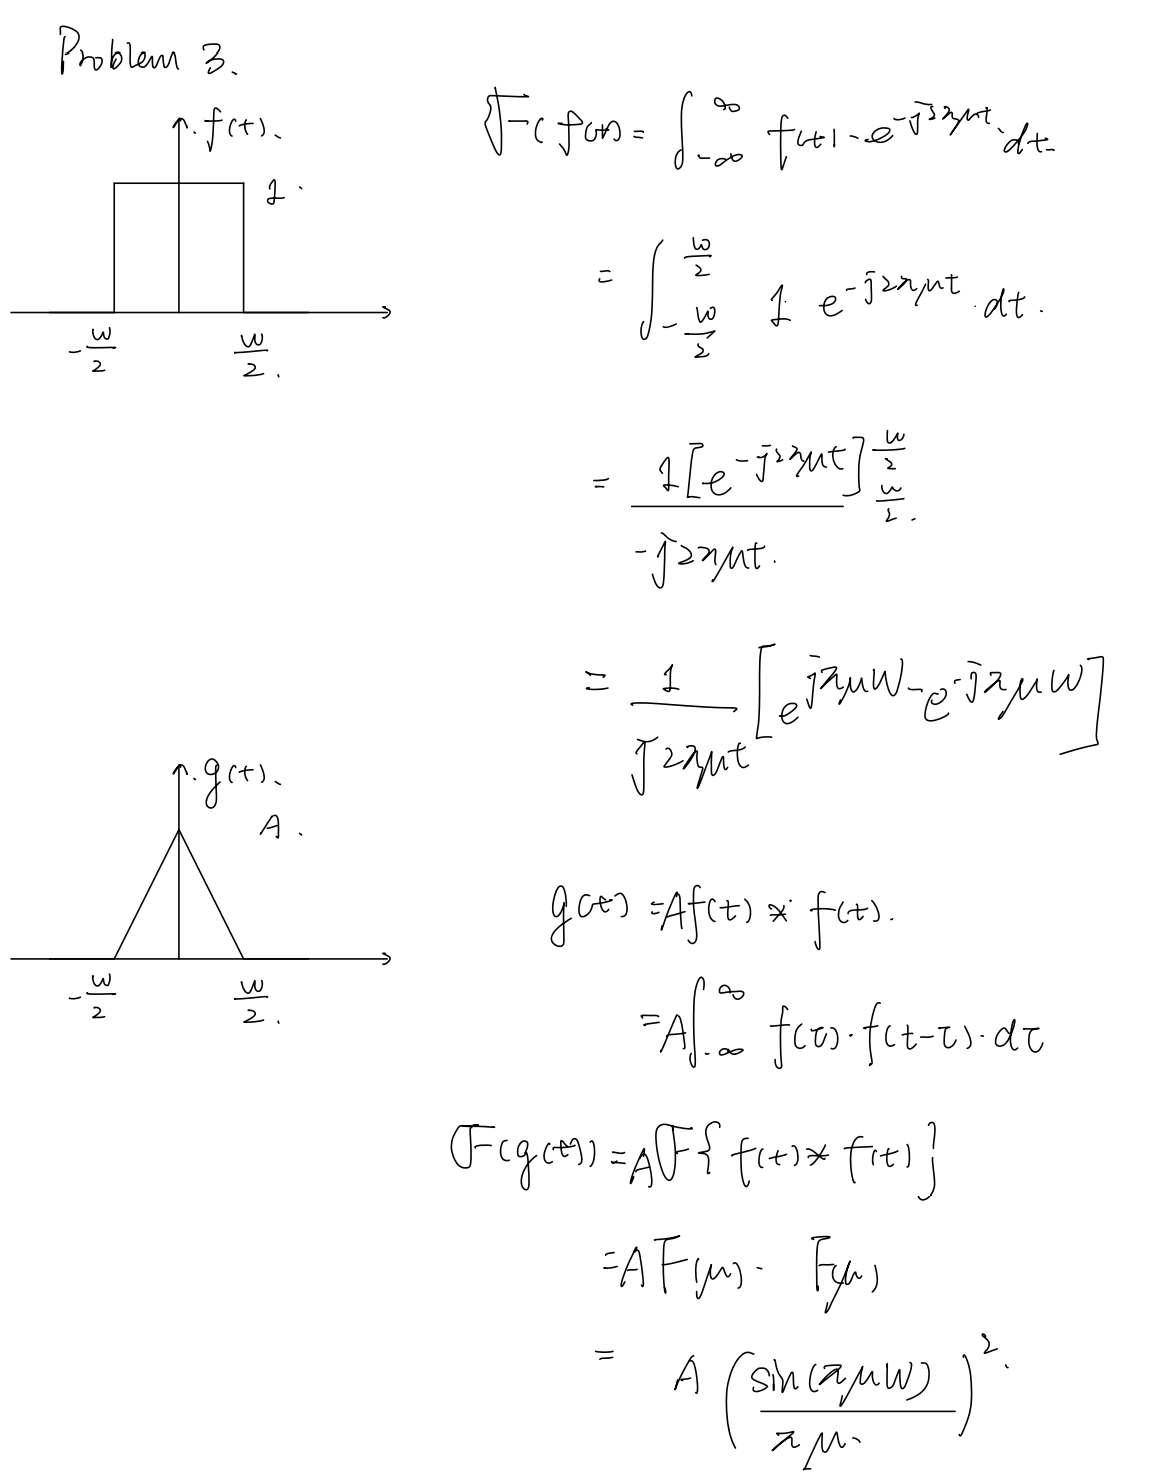 Problem 3.
f(t).
1.
-w/2 w/2.
F(f(t)) = ∫_{-∞}^{∞} f(t) · e^{-j2πμt} · dt.
= ∫_{-w/2}^{w/2} 1 e^{-j2πμt} · dt.
= 1[e^{-j2πμt}]_{w/2}^{w/2} / -j2πμt.
= 1/(j2πμt) [e^{jπμW} - e^{-jπμW}]
g(t).
A.
-w/2 w/2.
g(t) = Af(t) * f(t).
= A∫_{-∞}^{∞} f(τ) · f(t-τ) · dτ
F(g(t)) = AF{f(t) * f(t)}
= AF(μ) · F(μ)
= A (sin(πμW) / πμ.)^2.